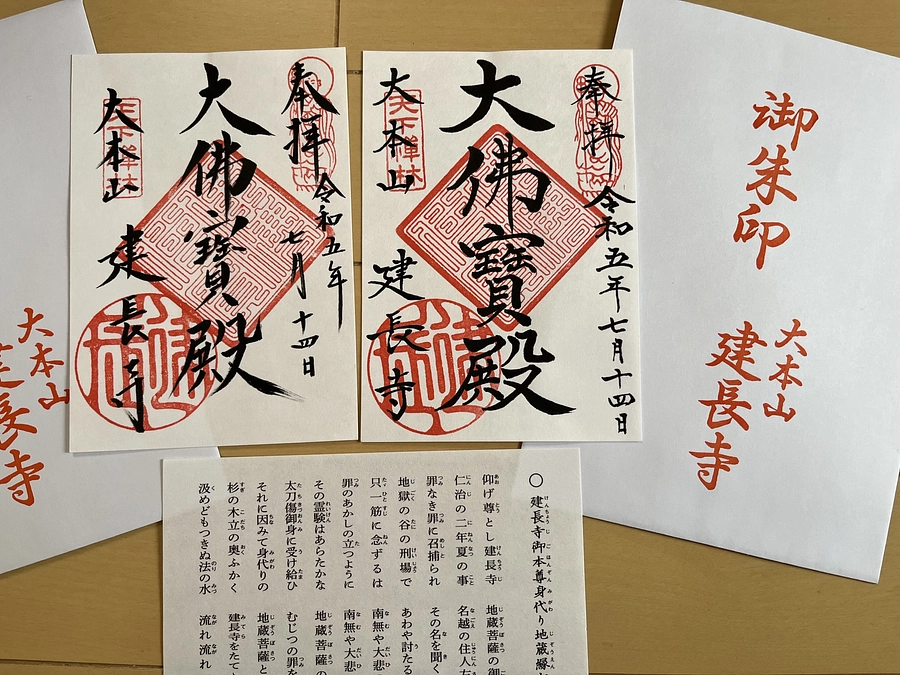 御朱印
大本山
建長寺
奉拝 令和五年七月十四日
大佛寶殿
大本山
天下禅林
建長寺
奉拝
令和五年
七月十四日
大佛寶殿
大本山
天下禅林
建長寺
大本山
建長寺
〇 建長寺御本尊身代り地蔵縁
仰げ尊とし建長寺 地蔵菩薩の御
仁治の二年夏の事 名越の住人
罪なき罪に召捕られ その名を聞く
地獄の谷の刑場で あわや討たる
只一筋に念ずるは 南無や大悲
罪のあかしの立つように 南無や大悲
その霊験はあらたかな 地蔵菩薩の
太刀傷御身に受け給ひ むじつの罪を
それに因みて身代りの 地蔵菩薩と
杉の木立の奥ふかく 建長寺をたて
汲めどもつきぬ法の水 流れ流れ